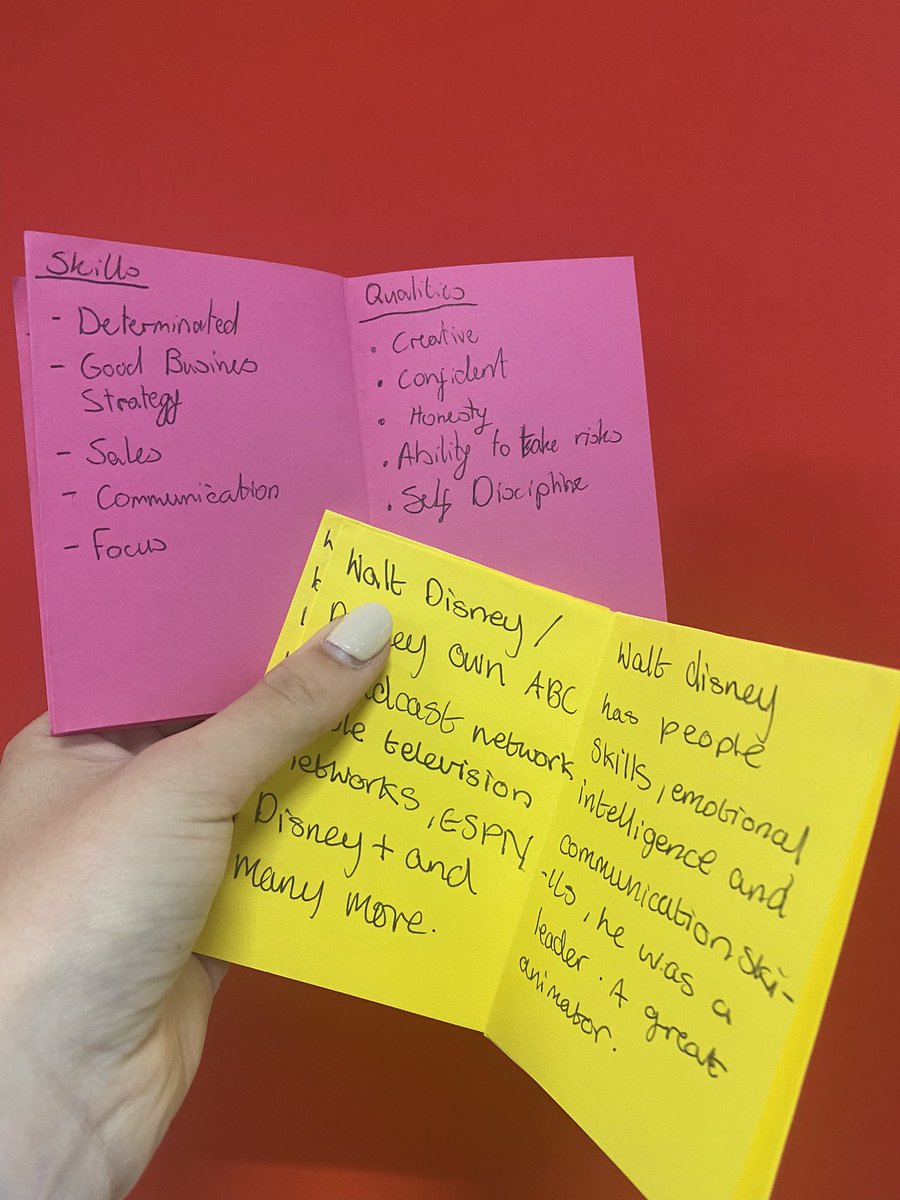 Skills
- Determinated
- Good Busines
Strategy
- Sales
- Communication
- Focus
Qualities
• Creative
• Confident
• Honesty
• Ability to take risks
• Self Discipline
Walt Disney /
own ABC
network
television
networks, ESPN
Disney+ and
many more.
Walt disney
has people
skills, emotional
intelligence and
communication ski-
-lls, he was a
leader. A great
animator.